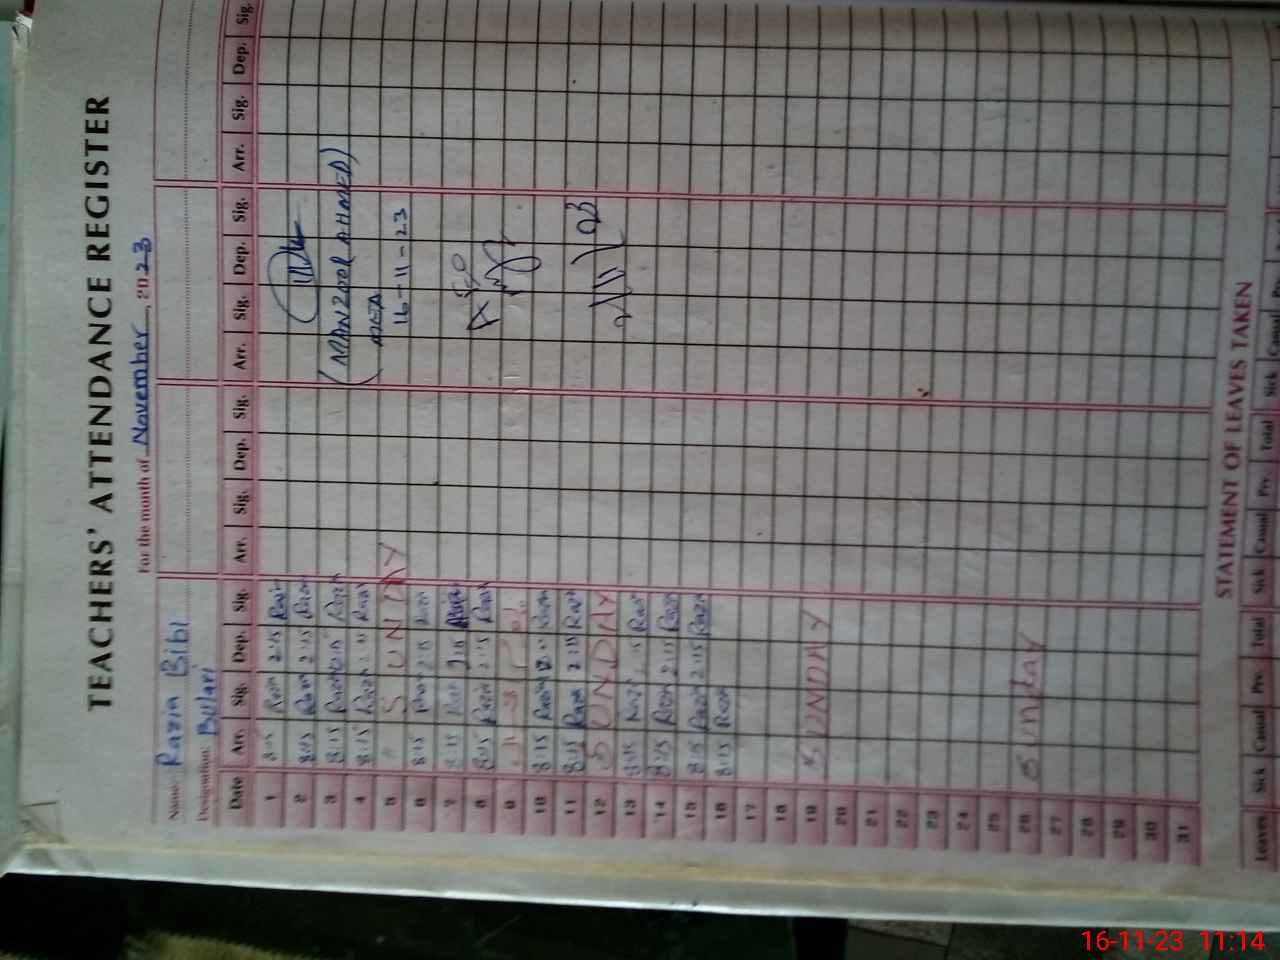 TEACHERS' ATTENDANCE REGISTER
For the month of November, 2023
Name: Razia Bibi
Designation: Bulari
Date Arr. Sig. Dep. Sig. Arr. Sig. Dep. Sig. Arr. Sig. Dep. Sig. Arr. Sig. Dep. Sig.
1 8:15 Razia 2:15 Razia
2 8:15 Razia 2:15 Razia
3 8:15 Razia Razia
(MANZOOR AHMED)
4 8:15 Razia Razia
5 SUNDAY
16-11-23
6 8:15 Razia 2:15 Razia
7 8:15 Razia 2:15 Razia
8 8:15 Razia 2:15 Razia
9
10 8:15 Razia Razia
11 8:15 Razia 2:15 Razia
12 SUNDAY
13 8:15 Razia Razia
14 8:15 Razia 2:15 Razia
15 8:15 Razia 2:15 Razia
16 8:15 Razia
17
18
19 SUNDAY
20
21
22
23
24
25
26 Sunday
27
28
29
30
31
STATEMENT OF LEAVES TAKEN
Leaves Sick Casual Prv. Total Sick Casual Prv. Total Sick Casual Prv.
16-11-23 11:14